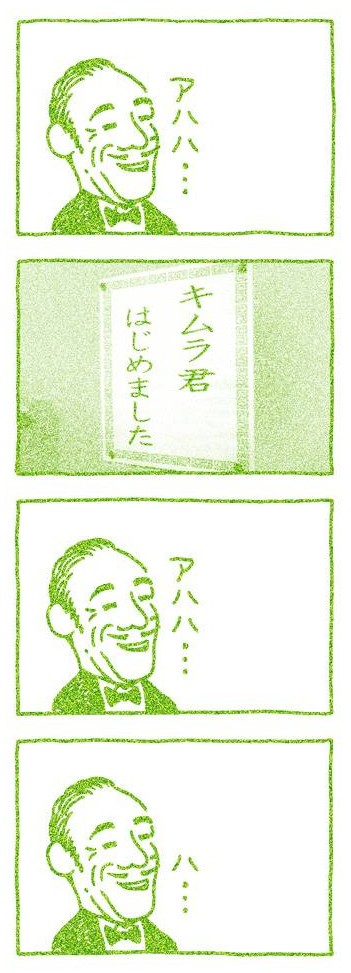 アハハ…
キムラ君
はじめました
アハハ…
ハ…